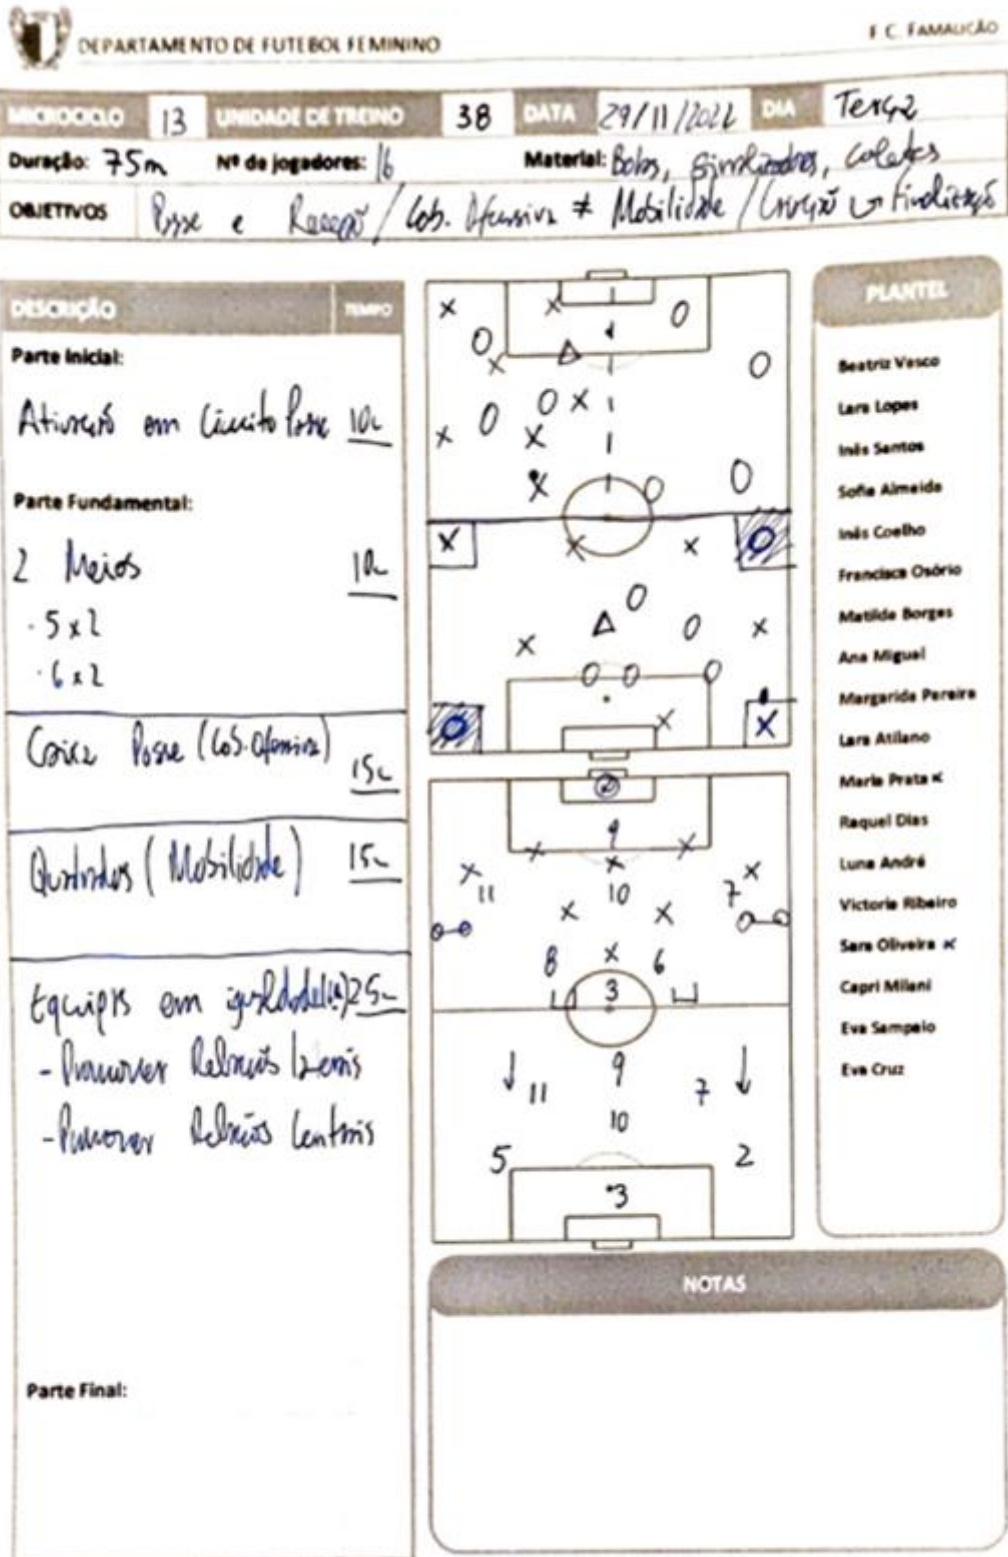 DEPARTAMENTO DE FUTEBOL FEMININO
F. C. FAMALICÃO
MICROCICLO 13 UNIDADE DE TREINO 38 DATA 29/11/2022 DIA Terça
Duração: 75m Nº de jogadores: 16 Material: Bolas, sinalizadores, coletes
OBJETIVOS Posse e Receção / Cob. Ofensiva ≠ Mobilidade / Criação ↳ Finalização
DESCRIÇÃO TEMPO
Parte Inicial:
Ativação em Circuito Posse 10
Parte Fundamental:
2 Meios 10
· 5x2
· 6x2
Posse (Cob. Ofensiva)
15
Quadrados (Mobilidade) 15
Equipas em igualdade 25
- Promover Relações laterais
- Promover Relações Centrais
Parte Final:
X X O
O X O
O X
X O X
X O O
X X X O
O
X O X
O O O
O X X
9
X X
X X X
11 10 7
X X
8 X 6
3
9
11 7
10
5 2
3
PLANTEL
Beatriz Vasco
Lara Lopes
Inês Santos
Sofia Almeida
Inês Coelho
Francisca Osório
Matilde Borges
Ana Miguel
Margarida Pereira
Lara Atilano
Maria Prata x
Raquel Dias
Luna André
Victoria Ribeiro
Sara Oliveira x
Capri Milani
Eva Sampaio
Eva Cruz
NOTAS